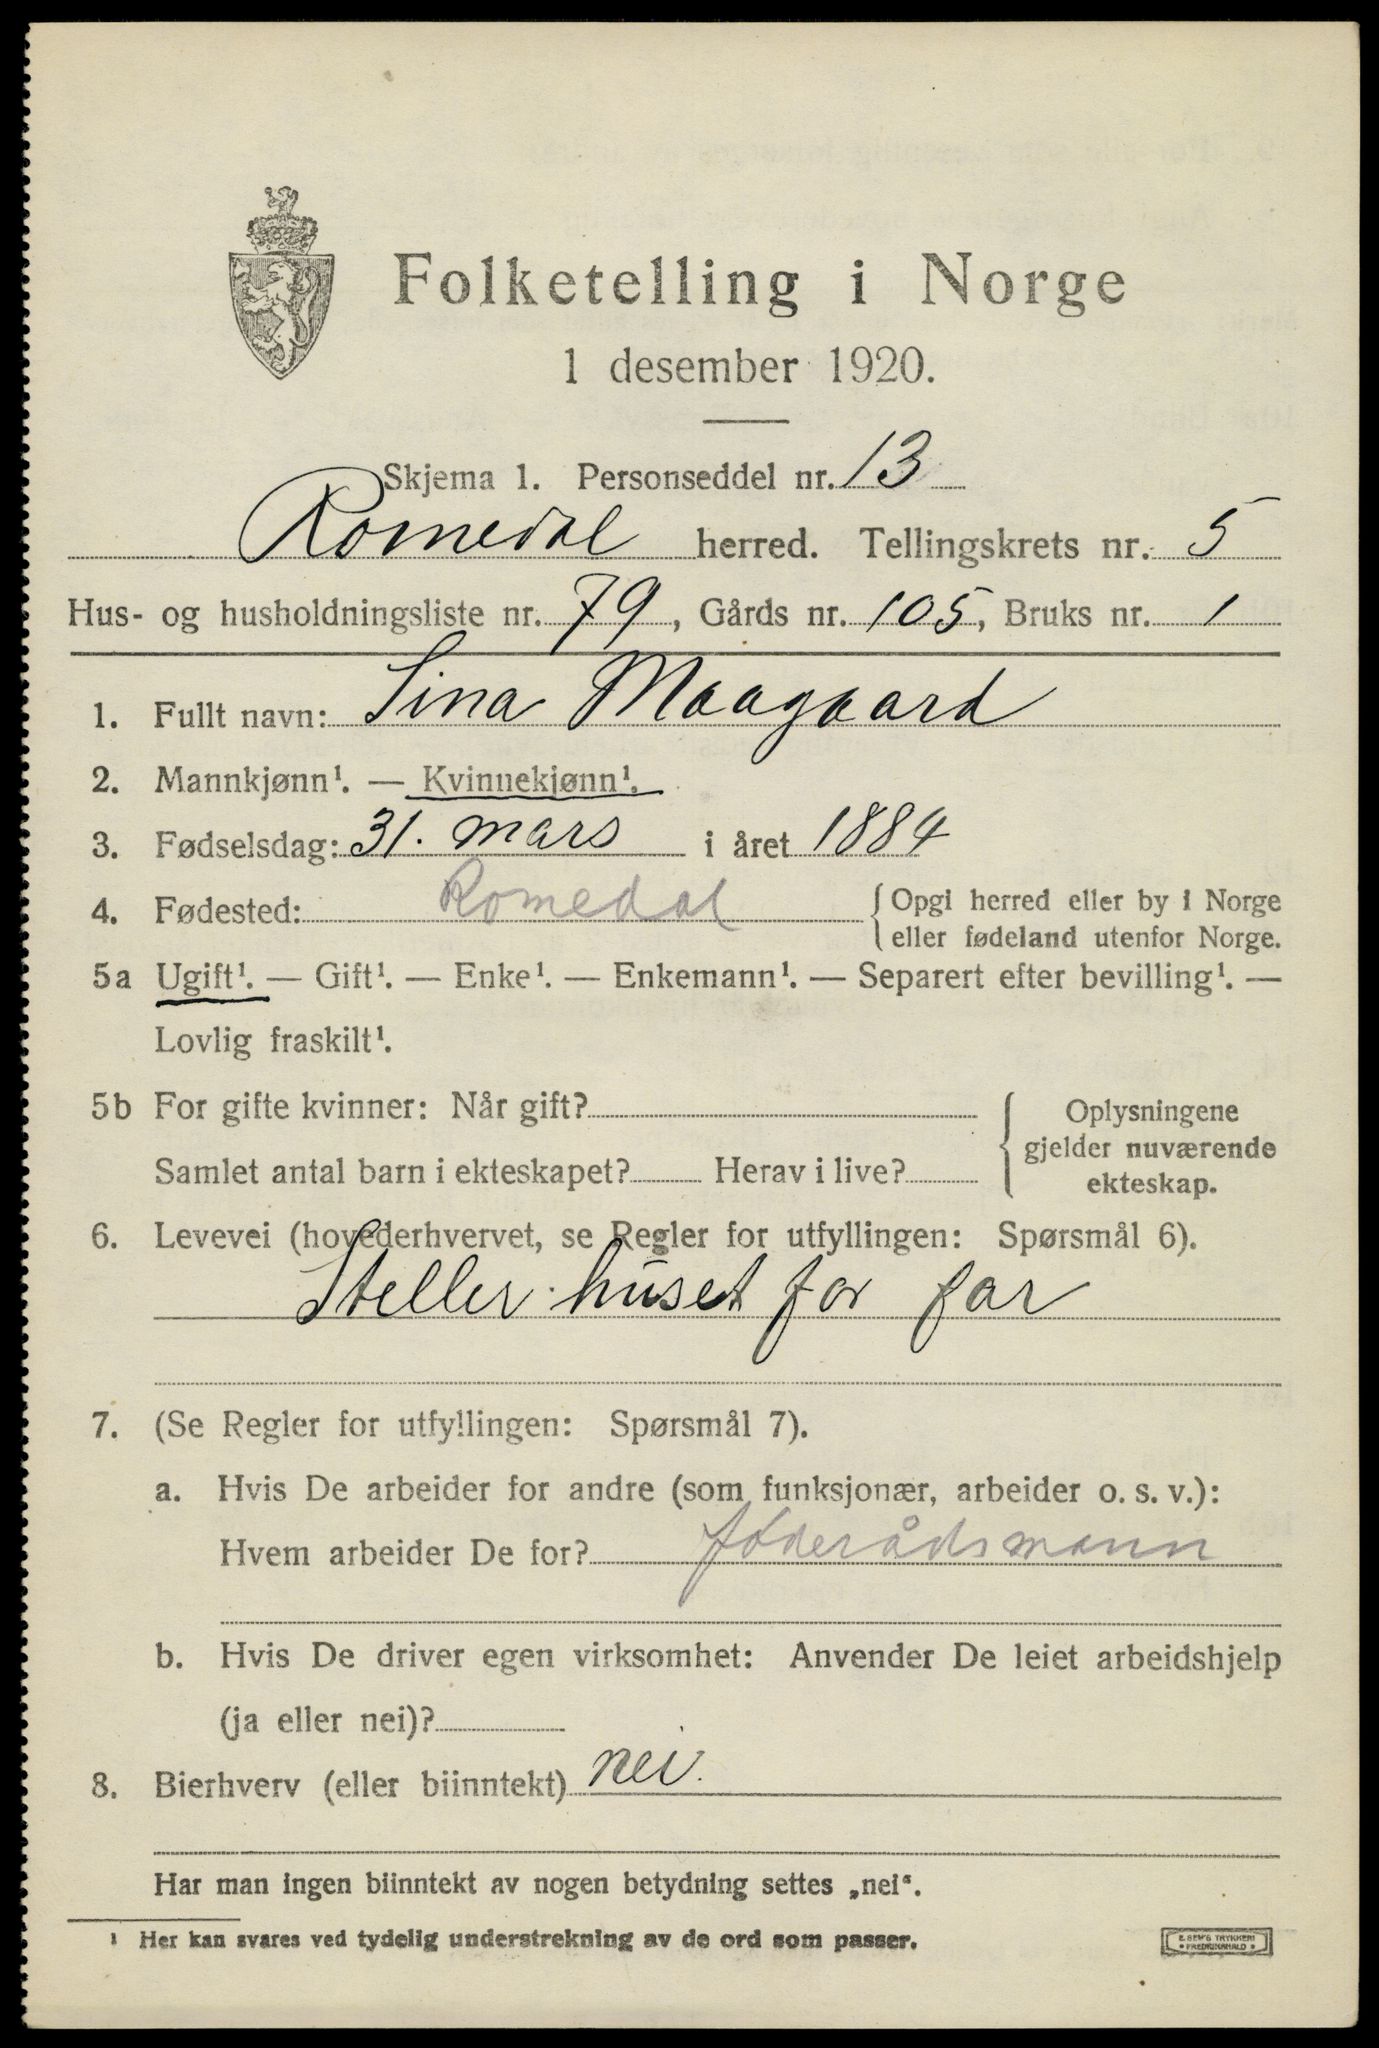 Folketelling i Norge
1 desember 1920.
Skjema 1. Personseddel nr. 13
Romedal herred. Tellingskrets nr. 5
Hus- og husholdningsliste nr. 79, Gårds nr. 105, Bruks nr. 1
1. Fullt navn: Sina Maagaard
2. Mannkjønn¹. — Kvinnekjønn¹.
3. Fødselsdag: 31. mars i året 1884
4. Fødested: Romedal { Opgi herred eller by i Norge
eller fødeland utenfor Norge.
5a Ugift¹. — Gift¹. — Enke¹. — Enkemann¹. — Separert efter bevilling¹. —
Lovlig fraskilt¹.
5b For gifte kvinner: Når gift?
Samlet antal barn i ekteskapet? Herav i live?
Oplysningene
gjelder nuværende
ekteskap.
6. Levevei (hovederhvervet, se Regler for utfyllingen: Spørsmål 6).
Steller huset for far
7. (Se Regler for utfyllingen: Spørsmål 7).
a. Hvis De arbeider for andre (som funksjonær, arbeider o. s. v.):
Hvem arbeider De for? føderådsmann
b. Hvis De driver egen virksomhet: Anvender De leiet arbeidshjelp
(ja eller nei)?
8. Bierhverv (eller biinntekt) nei.
Har man ingen biinntekt av nogen betydning settes „nei“.
¹ Her kan svares ved tydelig understrekning av de ord som passer.
E. SEM'S TRYKKERI
FREDRIKSHALD